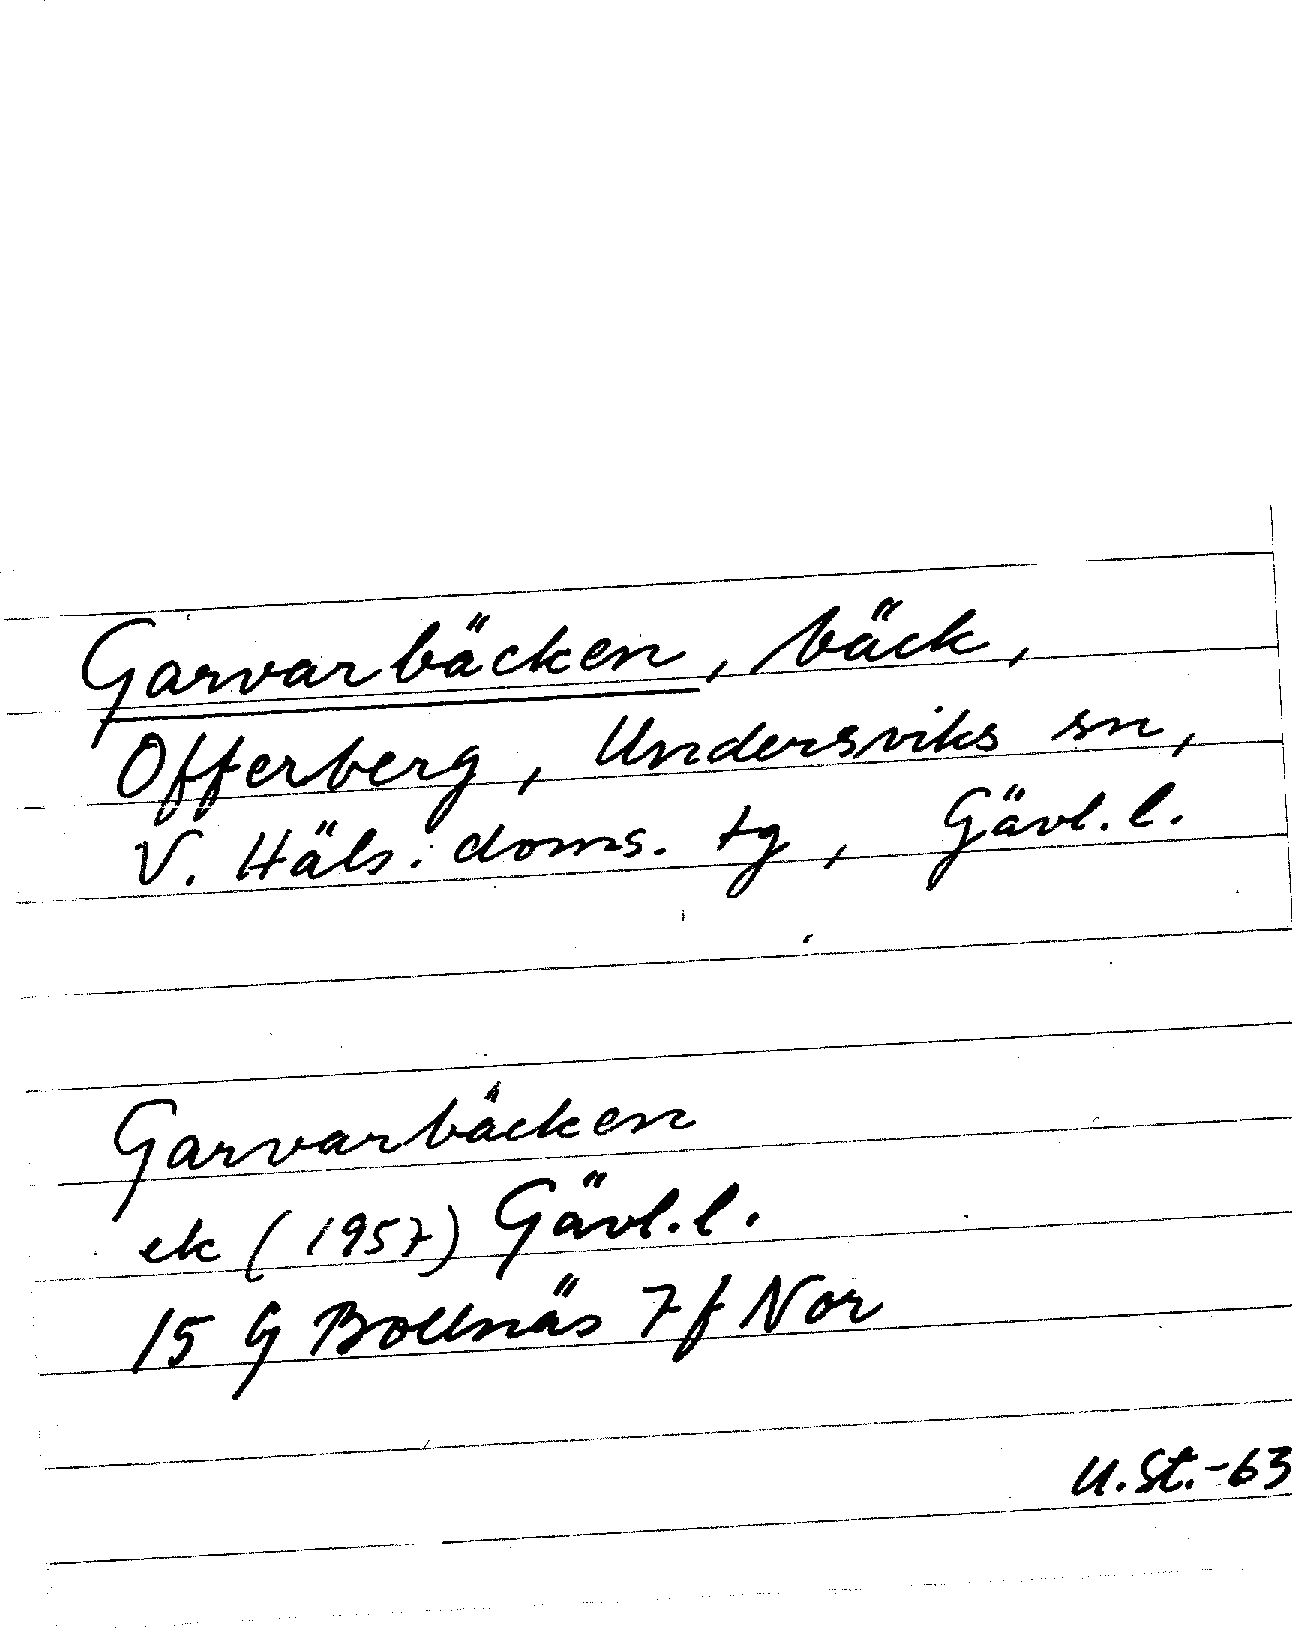 Garvarbäcken, bäck,
Offerberg, Undersviks sn,
V. Häls. doms. tg, Gävl. l.
Garvarbäcken
ek (1957) Gävl. l.
15 G Bollnäs 7 f Nor
U. St. -63